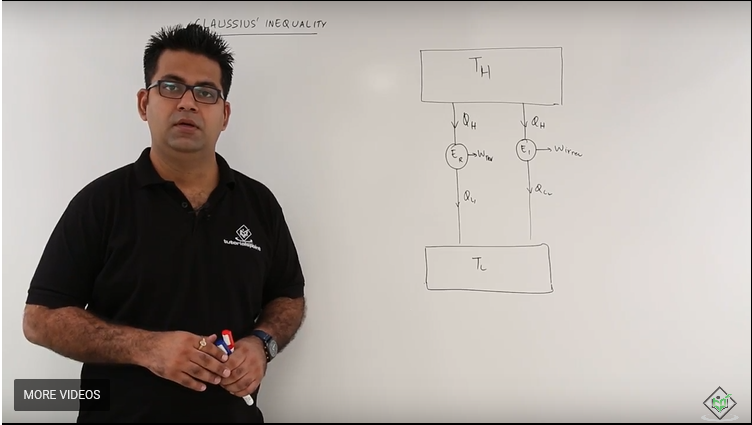 CLAUSSIUS' INEQUALITY
TH
QH
QH
ER
Wrev
EI
Wirrev
QL
QLL
TL
tutorialspoint
MORE VIDEOS